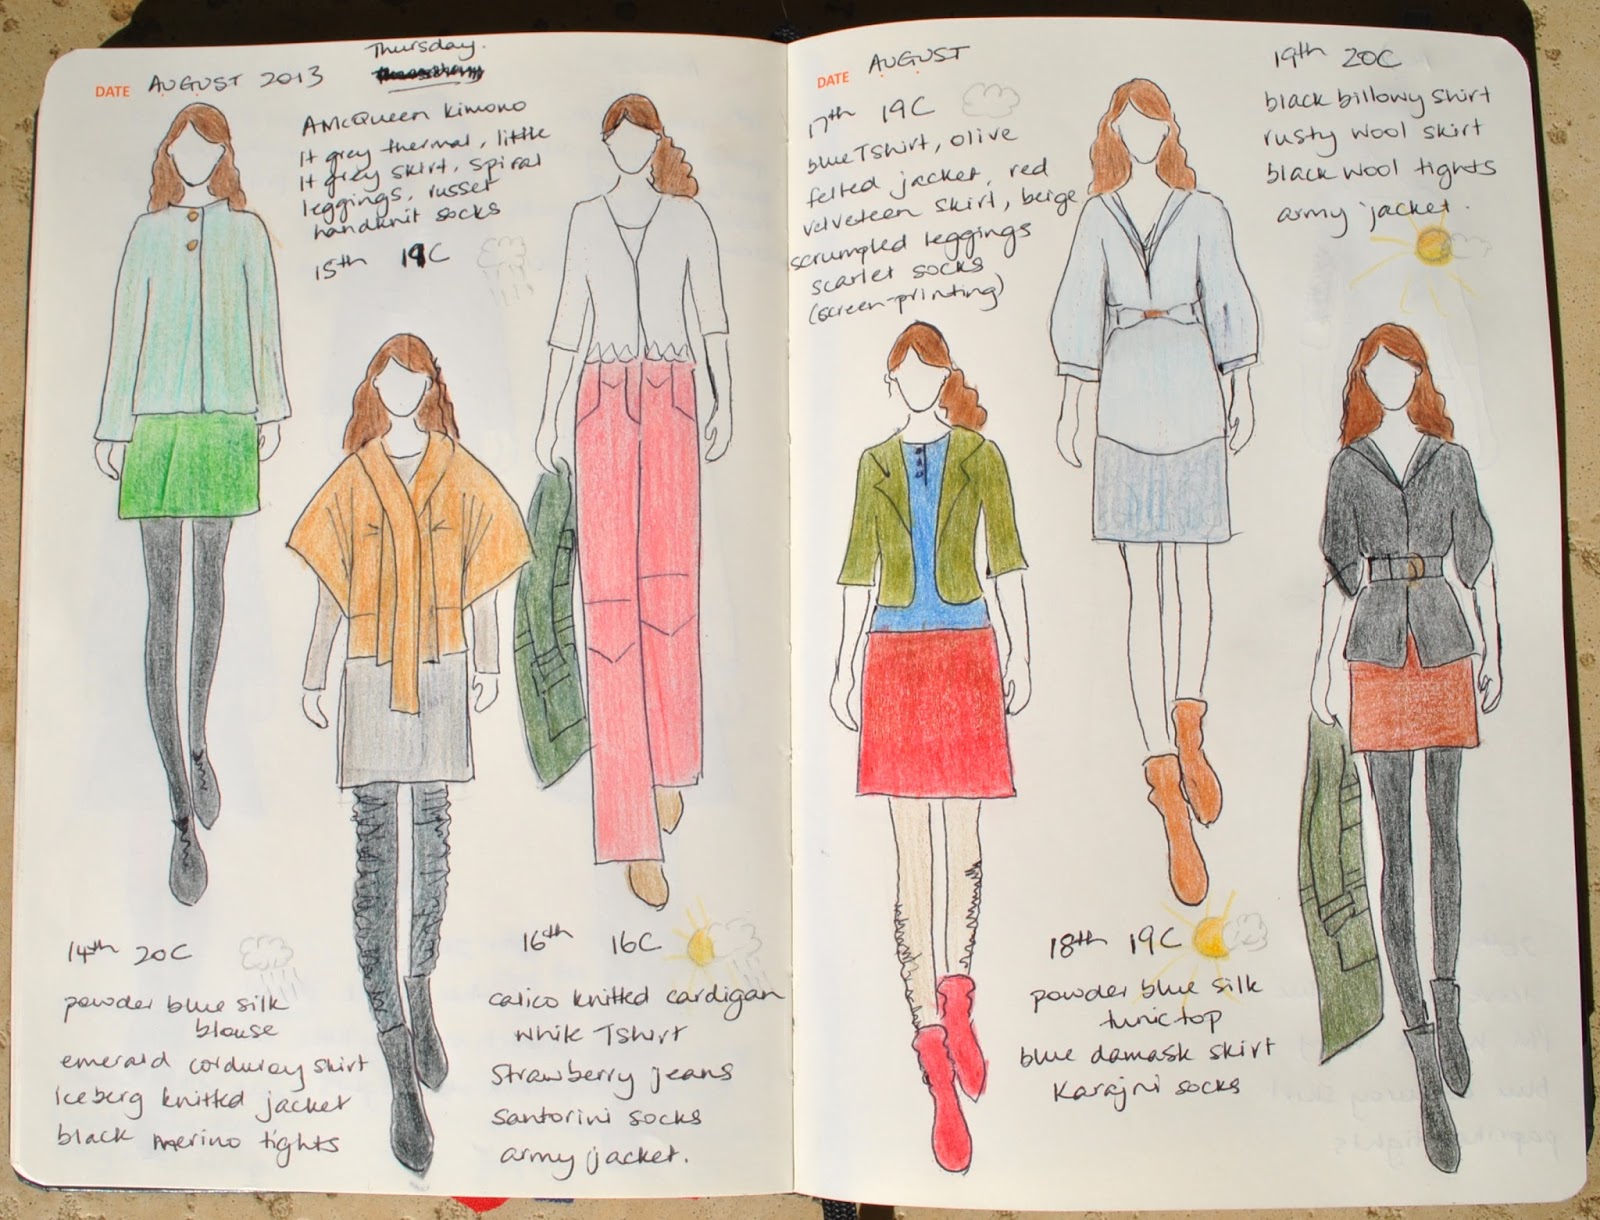 DATE AUGUST 2013
Thursday.
AMcQueen kimono
lt grey thermal, little
lt grey skirt, spiral
leggings, russet
handknit socks
15th 19C
14th 20C
powder blue silk
blouse
emerald corduroy skirt
Iceberg knitted jacket
black merino tights
16th 16C
calico knitted cardigan
white Tshirt
Strawberry jeans
Santorini socks
army jacket.
DATE AUGUST
17th 19C
blue Tshirt, olive
felted jacket, red
velveteen skirt, beige
scrumpled leggings
scarlet socks
(screen-printing)
18th 19C
powder blue silk
tunic top
blue damask skirt
Karajni socks
19th 20C
black billowy shirt
rusty wool skirt
black wool tights
army jacket.